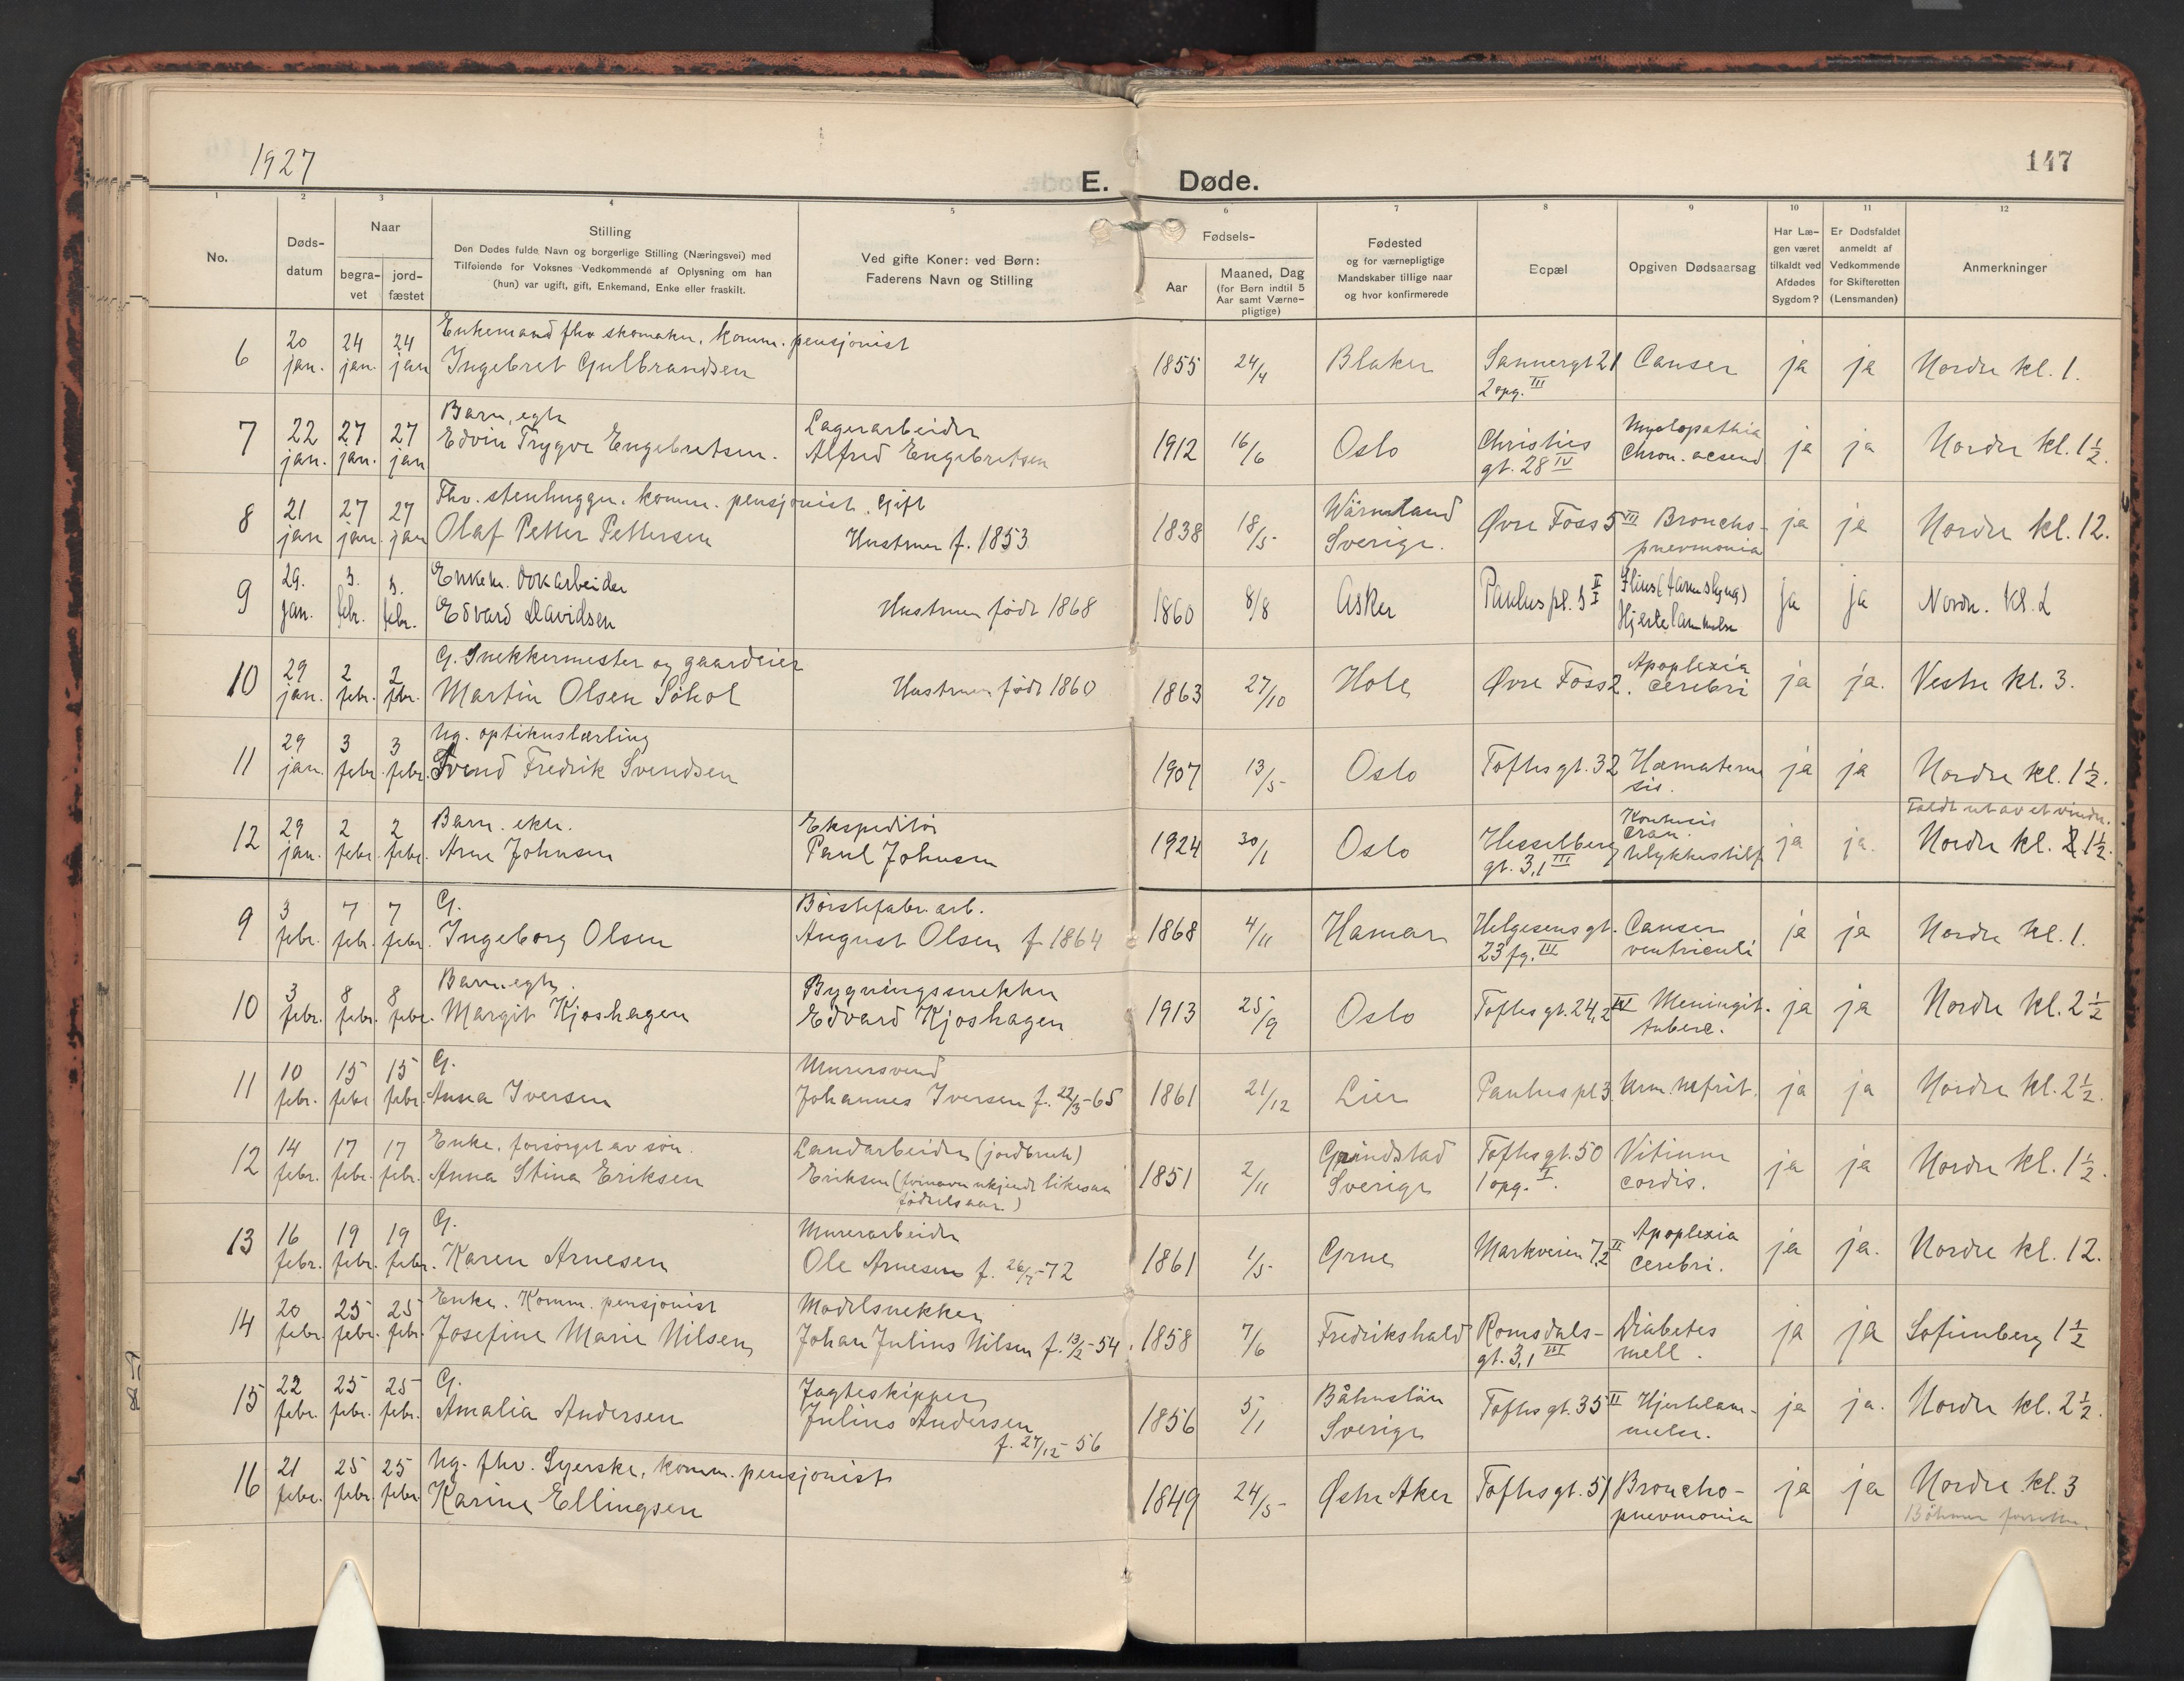 1927
E. Døde.
147
1 2 3 4 5 6 7 8 9 10 11 12
No.
Døds-
datum
Naar
begra-
vet
jord-
fæstet
Stilling
Den Dødes fulde Navn og borgerlige Stilling (Næringsvei) med
Tilføiende for Voksnes Vedkommende af Oplysning om han
(hun) var ugift, gift, Enkemand, Enke eller fraskilt.
Ved gifte Koner: ved Børn:
Faderens Navn og Stilling
Fødsels-
Aar
Maaned, Dag
(for Børn indtil 5
Aar samt Værne-
pligtige)
Fødested
og for værnepligtige
Mandskaber tillige naar
og hvor konfirmerede
Bopæl
Opgiven Dødsaarsag
Har Læ-
gen været
tilkaldt ved
Afdødes
Sygdom?
Er Dødsfaldet
anmeldt af
Vedkommende
for Skifteretten
(Lensmanden)
Anmerkninger
Enkemand fhv skomaker, komm. pensjonist
6 20 jan. 24 jan. 24 jan Ingebret Gulbrandsen 1855 24/4 Blaker Sannergt 21 Canser ja ja Nordre kl. 1.
2 opg. III
Barn, egte Lagerarbeider
7 22 jan. 27 jan. 27 jan Edvin Trygve Engebretsen. Alfred Engebretsen 1912 16/6 Oslo Christies gt. 28 IV Myelopathia chron. acsend ja ja Nordre kl. 1½.
Fhv. stenhugger. komm. pensjonist. Gift
8 21 jan 27 jan. 27 jan Olaf Petter Pettersen Hustruen f. 1853 1838 18/5 Wärmland Sverige. Øvre Foss 5 VII Broncho-pnevmonia ja ja Nordre kl. 12.
Enkem. Dokarbeider
9 29. jan. 3. febr. 3. febr. Edvard Davidsen Hustruen født 1868 1860 8/8 Asker Paulus pl. 3 Ilius (tarmslyng) Hjertelammelse ja ja Nordr. Kl. 2
G. Snekkermester og gaardeier
10 29 jan. 2 febr. 2 febr. Martin Olsen Søhol Hustruen født 1860 1863 27/10 Hole Øvre Foss 2. Apoplexia cerebri ja ja. Vestre kl. 3.
Ug. optikuslærling
11 29 jan. 3 febr. 3 febr. Svend Fredrik Svendsen 1907 13/5 Oslo Toftesgt. 32 Hæmateme sis. ja ja Nordre kl. 1½.
Barn. ekte. Ekspeditør Faldt ut av et vindu.
12 29 jan. 2 febr. 2 febr. Arne Johnsen Paul Johnsen 1924 30/1 Oslo Hesselberg gt. 3,1 III Kontusis cran. Ulykkestilf ja ja. Nordre kl. 2 1½.
G. Børstefabr. arb.
9 3 febr. 7 febr. 7 febr. Ingeborg Olsen August Olsen f 1864 1868 4/11 Hamar Helgesens gt. 23 fg. III Canser ventriculi ja ja Nordre kl. 1.
Barn. egte. Bygningssnekker
10 3 febr. 8 febr. 8 febr. Margit Kjoshagen Edvard Kjoshagen 1913 25/9 Oslo Toftes gt. 24,2 IV Meningit. tuberc. ja ja Nordre kl. 2½
G. Murersvend
11 10 febr. 15 febr 15 febr. Anna Iversen Johannes Iversen f. 22/3-65 1861 21/12 Lier Paulus pl 3 Urm. Nefrit. ja ja Nordre kl. 2½.
Enke. forsørget av søn. Landarbeider (jordbruk)
12 14 febr. 17 febr. 17 febr. Anna Stina Eriksen Eriksen (fornavn ukjendt likesaa fødselsaar) 1851 2/11 Grindstad Sverige Toftesgt. 50 1 opg. I. Vitium cordis. ja ja Nordre kl. 1½.
G. Murerarbeider
13 16 febr. 19 febr. 19 febr. Karen Arnesen Ole Arnesen f. 26/7-72 1861 1/5 Grue Markveien 7,2 II Apoplexia cerebri. ja ja. Nordre kl. 12.
Enke. Komm. pensjonist Modelsnekker
14 20 febr. 25 febr. 25 febr. Josefine Marie Nilsen Johan Julius Nilsen f. 13/2-54. 1858 7/6 Fredrikshald Romsdals-gt. 3,1 III Diabetes mell. ja ja Sofienberg 1½
G. Jagteskipper
15 22 febr. 25 febr. 25 febr. Amalia Andersen Julius Andersen f. 27/12-56 1856 5/1 Båhuslän Sverige Toftesgt. 35 II Hjertelam-melse. ja ja. Nordre kl. 2½.
Ug. fhv. Syerske, komm. pensjonist
16 21 febr. 25 febr. 25 febr Karine Ellingsen 1849 24/5 Østre Aker Toftesgt. 51 Broncho-pnevmonia ja ja Nordre kl. 3